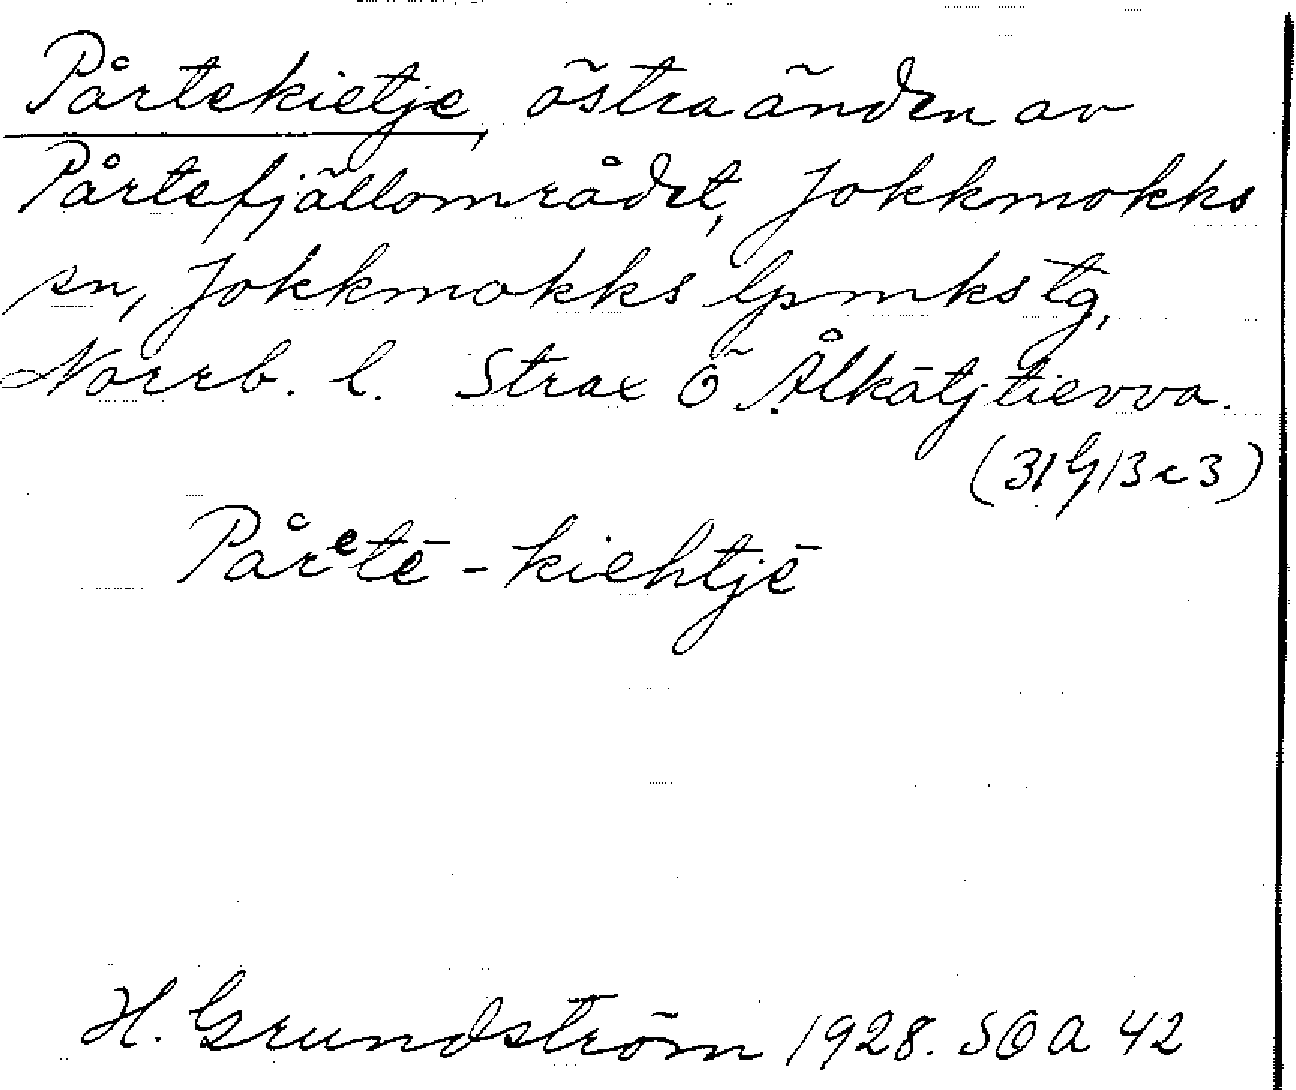 Pårtekietje, östra änden av
Pårtefjällområdet, Jokkmokks
sn, Jokkmokks lpmks tg,
Norrb. l. Strax Ö Ålkatjtievva.
(31G/3c3)
Pårᵉtē-kiehtjē
H. Grundström 1928. SOA 42